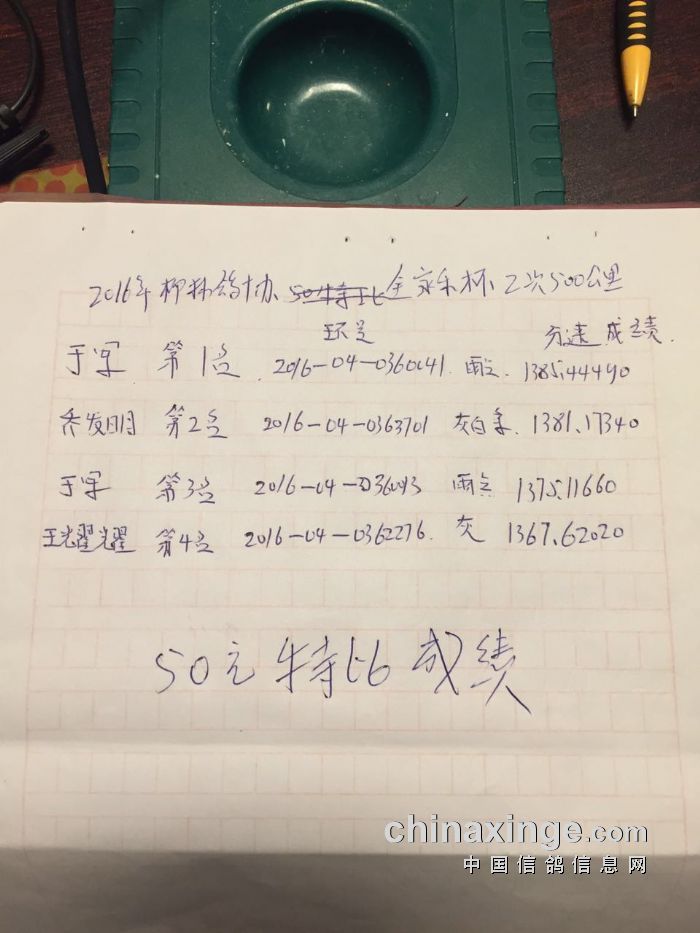 2016年柳林鸽协 50特比 全家乐杯、2次500公里
环号 分速成绩.
于军 第1名 2016-04-0360041. 雨点. 1385.44490
乔发明 第2名 2016-04-0363701 灰白条. 1381.17340
于军 第3名 2016-04- 雨点 1375.11660
王耀耀 第4名 2016-04-0362276. 灰 1367.62020
50元特比成绩
chinaxinge.com
中国信鸽信息网